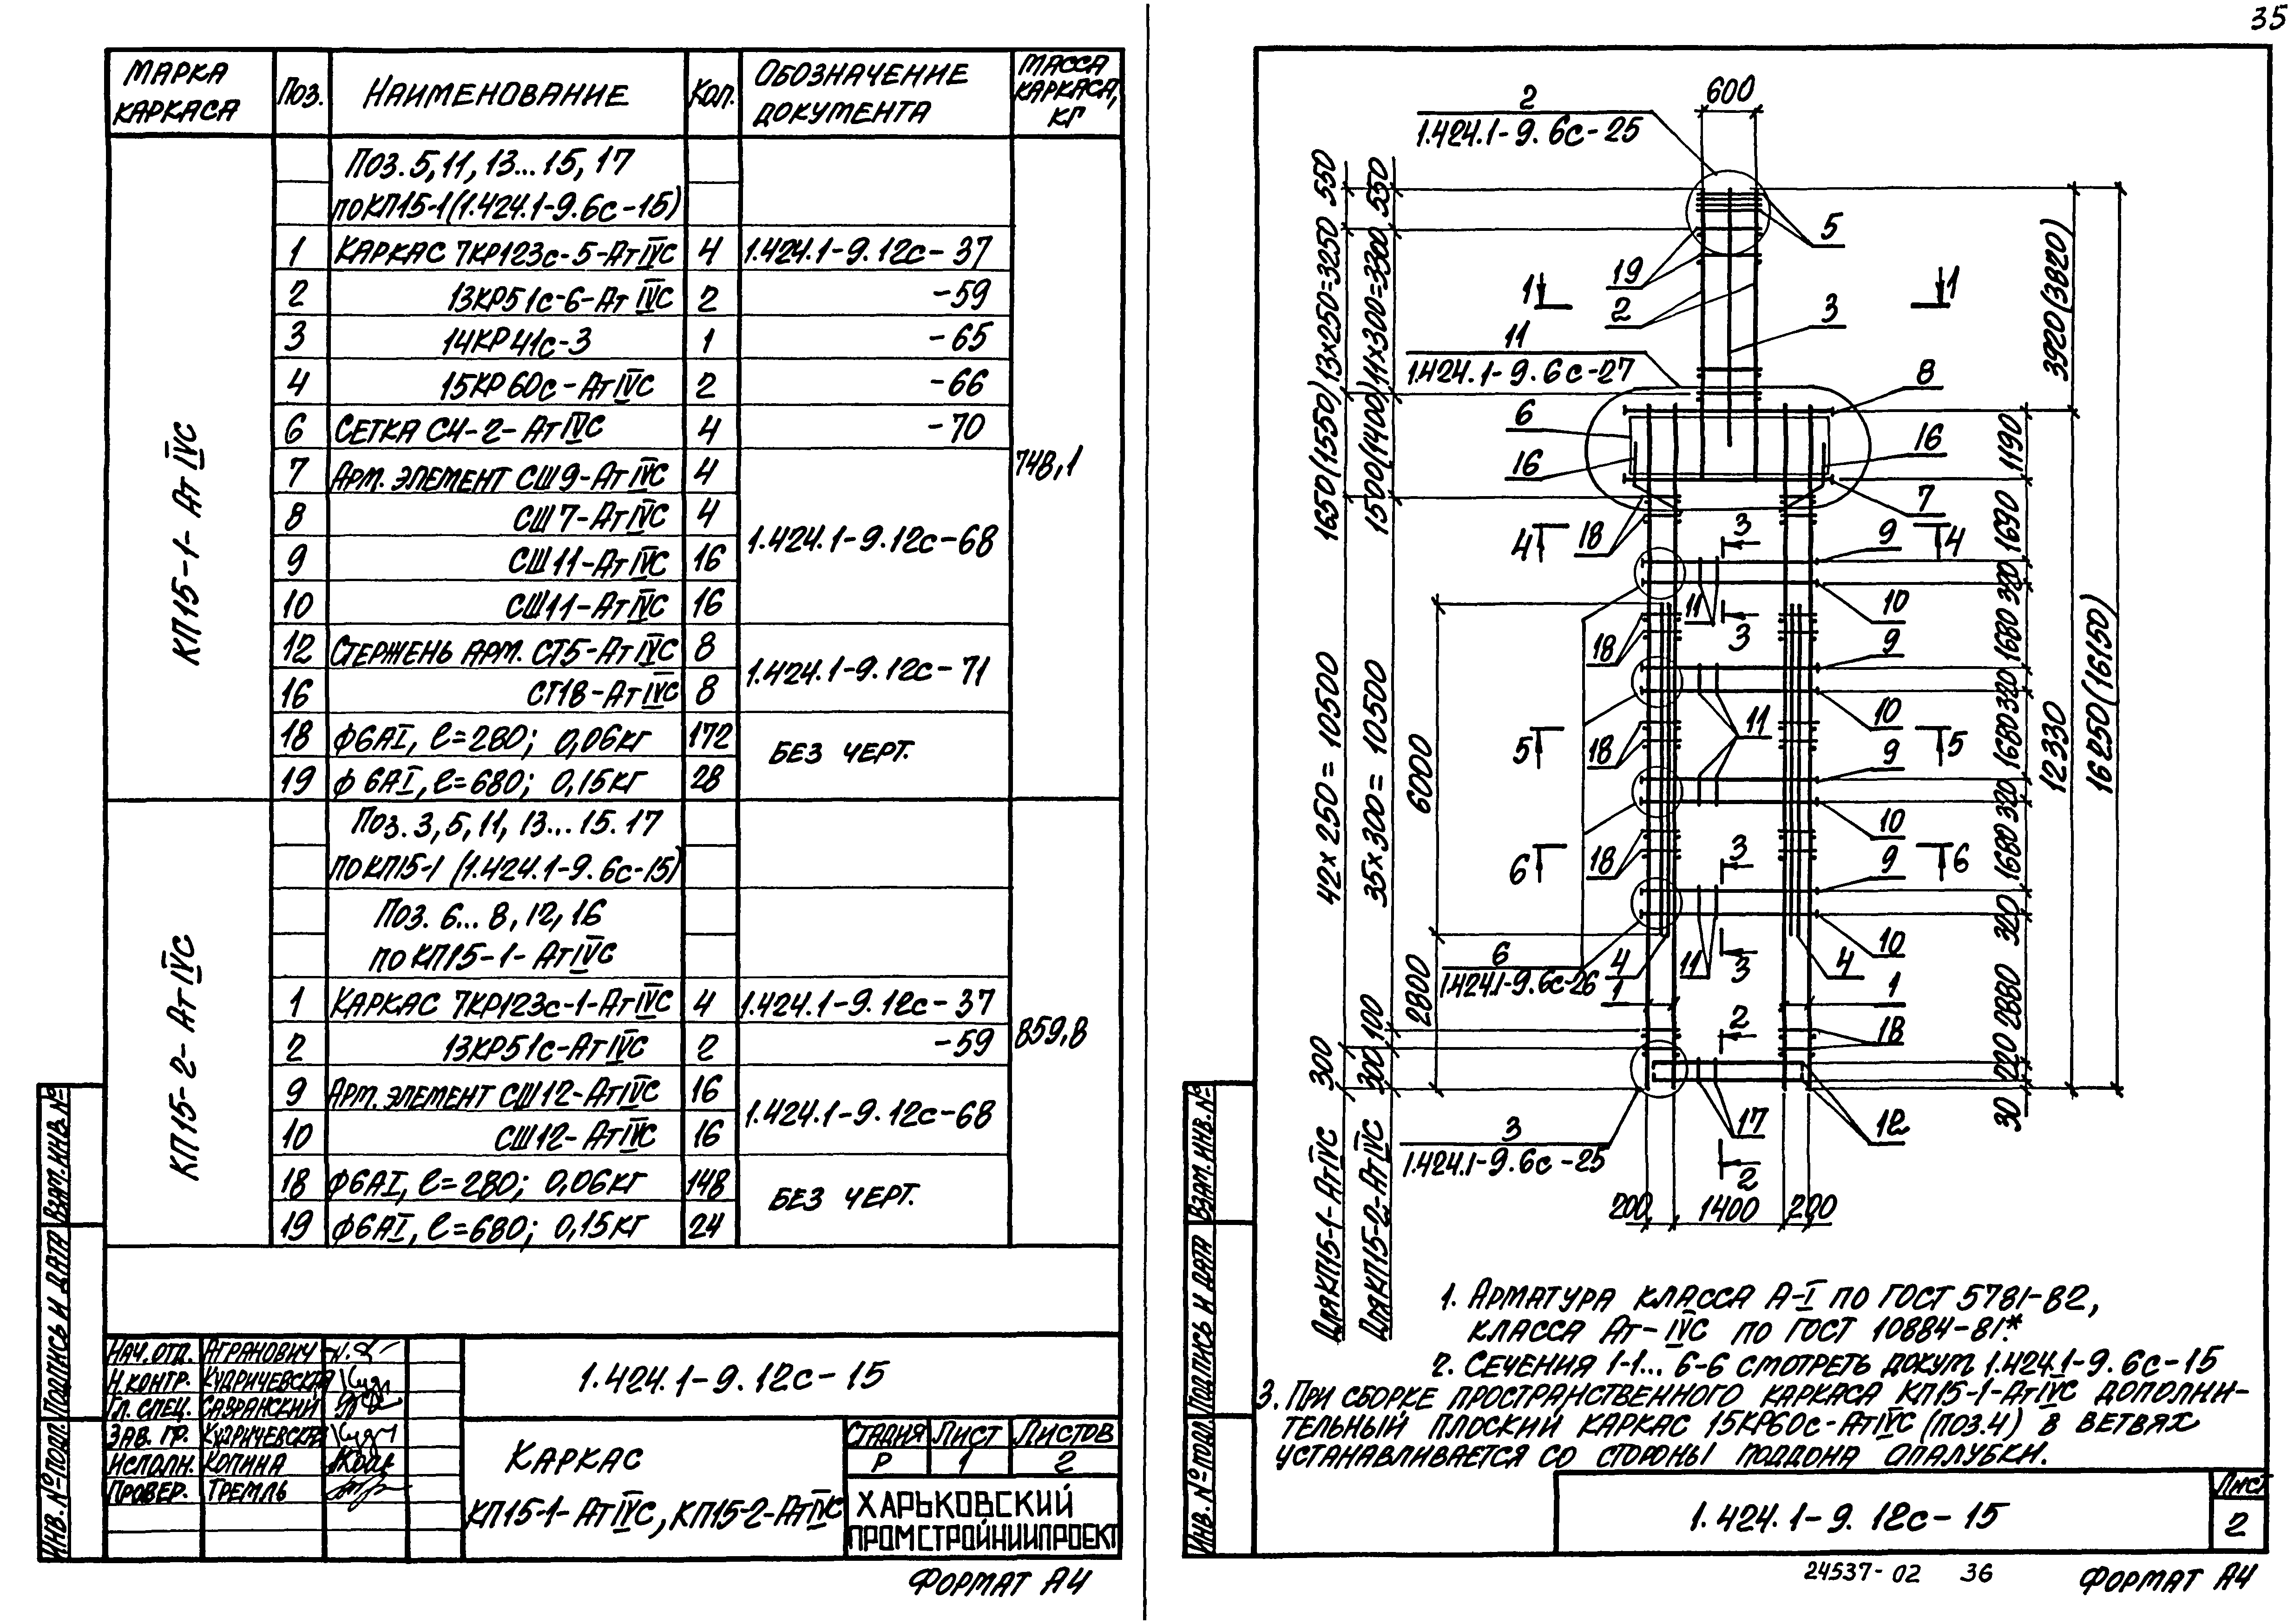 35
МАРКА КАРКАСА Поз. НАИМЕНОВАНИЕ Кол. ОБОЗНАЧЕНИЕ ДОКУМЕНТА МАССА КАРКАСА, КГ
КП15-1-АтIVС
748,1
Поз. 5, 11, 13...15, 17
по КП15-1 (1.424.1-9.6с-15)
1 КАРКАС 7КР123с-5-АтIVС 4 1.424.1-9.12с-37
2 13КР51с-6-АтIVС 2 -59
3 14КР41с-3 1 -65
4 15КР60с-АтIVС 2 -66
6 СЕТКА С4-2-АтIVС 4 -70
7 АРМ. ЭЛЕМЕНТ СШ9-АтIVС 4
8 СШ7-АтIVС 4
1.424.1-9.12с-68
9 СШ11-АтIVС 16
10 СШ11-АтIVС 16
12 СТЕРЖЕНЬ АРМ. СТ5-АтIVС 8
1.424.1-9.12с-71
16 СТ18-АтIVС 8
18 ф6АI, ℓ=280; 0,06кг 172
БЕЗ ЧЕРТ.
19 ф6АI, ℓ=680; 0,15кг 28
КП15-2-АтIVС
859,8
Поз. 3, 5, 11, 13...15. 17
по КП15-1 (1.424.1-9.6с-15)
Поз. 6...8, 12, 16
по КП15-1-АтIVС
1 КАРКАС 7КР123с-1-АтIVС 4 1.424.1-9.12с-37
2 13КР51с-АтIVС 2 -59
9 АРМ. ЭЛЕМЕНТ СШ12-АтIVС 16
1.424.1-9.12с-68
10 СШ12-АтIVС 16
18 ф6АI, ℓ=280; 0,06кг 148
БЕЗ ЧЕРТ.
19 ф6АI, ℓ=680; 0,15кг 24
ИНВ. № ПОДЛ. ПОДПИСЬ И ДАТА ВЗАМ. ИНВ. №
НАЧ. ОТД. АГРАНОВИЧ
Н.КОНТР. КУДРИЧЕВСКАЯ
ГЛ. СПЕЦ. САВРАНСКИЙ
ЗАВ. ГР. КУДРИЧЕВСКАЯ
ИСПОЛН. КОПИНА
ПРОВЕР. ТРЕМЛЬ
1.424.1-9.12с-15
КАРКАС
КП15-1-АтIVС, КП15-2-АтIVС
СТАДИЯ ЛИСТ ЛИСТОВ
Р 1 2
ХАРЬКОВСКИЙ
ПРОМСТРОЙНИИПРОЕКТ
ФОРМАТ А4
600
2
1.424.1-9.6с-25
5
19
2
3
1
1
11
1.424.1-9.6с-27
8
6
16
16
7
4
18
3
9
4
11
3
10
18
9
10
5
18
11
5
9
10
18
3
9
6
6
10
6
1.424.1-9.6с-26
4
11
3
4
1
1
2
18
3
1.424.1-9.6с-25
17
12
2
200 1400 200
550
13×250=3250
1650(1550)
42×250=10500
300
ДЛЯ КП15-1-АтIVС
550
11×300=3300
1500(1400)
35×300=10500
100
300
ДЛЯ КП15-2-АтIVС
6000
2800
1190
1690
320
1680
320
1680
320
1680
320
2880
220
30
3920(3820)
12330
16250(16150)
1. АРМАТУРА КЛАССА А-I ПО ГОСТ 5781-82,
КЛАССА Ат-IVС ПО ГОСТ 10884-81*.
2. СЕЧЕНИЯ 1-1...6-6 СМОТРЕТЬ ДОКУМ. 1.424.1-9.6с-15
3. ПРИ СБОРКЕ ПРОСТРАНСТВЕННОГО КАРКАСА КП15-1-АтIVС ДОПОЛНИ-
ТЕЛЬНЫЙ ПЛОСКИЙ КАРКАС 15КР60с-АтIVС (ПОЗ.4) В ВЕТВЯХ
УСТАНАВЛИВАЕТСЯ СО СТОРОНЫ ПОДДОНА ОПАЛУБКИ.
ИНВ. № ПОДЛ. ПОДПИСЬ И ДАТА ВЗАМ. ИНВ. №
1.424.1-9.12с-15
ЛИСТ
2
24537-02 36
ФОРМАТ А4